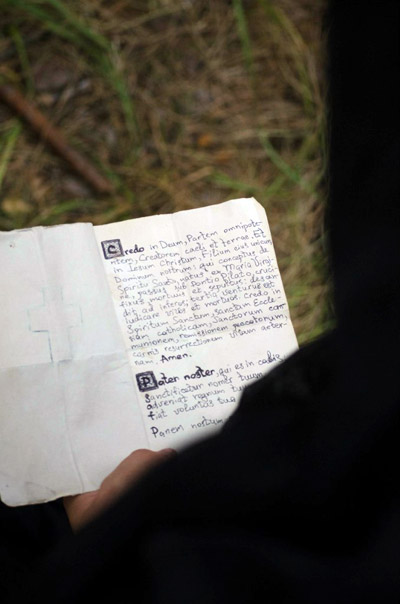 Credo in Deum, Partem omnipote-
ntem, Creatorem caeli et terrae. Et
in Iesum Christum, Filium eius unicum
Dominum nostrum: qui conceptus de
Spiritu Sancto, natus ex Maria Virgi-
ne, passus sub Pontio Pilato, cruci-
fixus, mortuus et sepultus: descen-
dit ad inferos: tertia venturus est
iudicare vivos et mortuos. Credo in
Spiritum Sanctum, sanctum Eccle-
siam catholicam, Sanctorum com-
munionem, remissionem peccatorum,
carnis resurrectionem vitam aeter-
nam. Amen.
Pater noster, qui es in caelis
Sanctificetur nomen tuum
adveniat regnum tuum
fiat voluntas tua
Panem nostrum